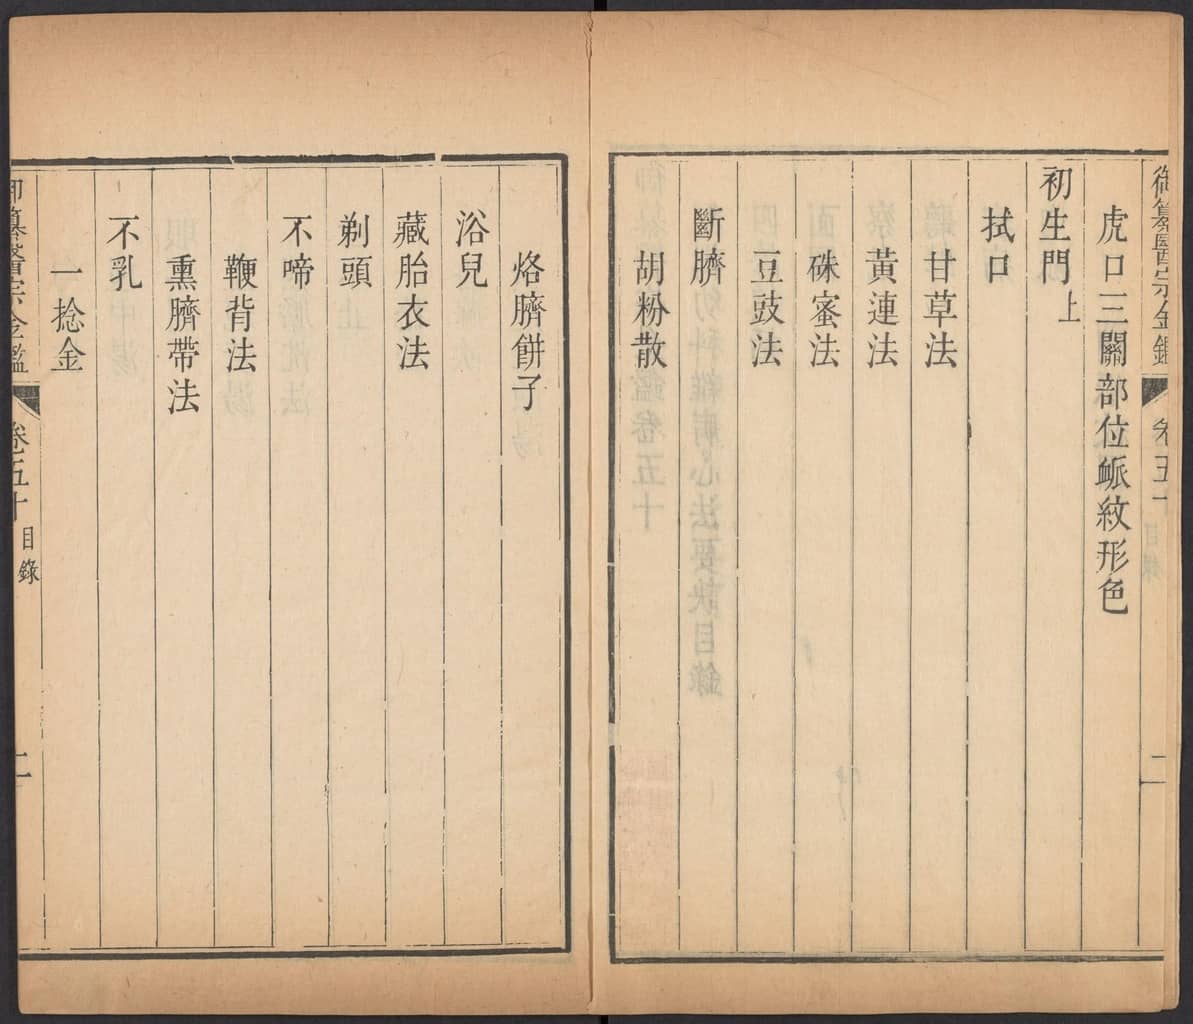 御纂醫宗金鑑 卷五十 目錄 二
虎口三關部位衇紋形色
初生門上
拭口
甘草法
黃連法
硃蜜法
豆豉法
斷臍
胡粉散
烙臍餅子
浴兒
藏胎衣法
剃頭
不啼
鞭背法
熏臍帶法
不乳
一捻金
御纂醫宗金鑑 卷五十 目錄 二